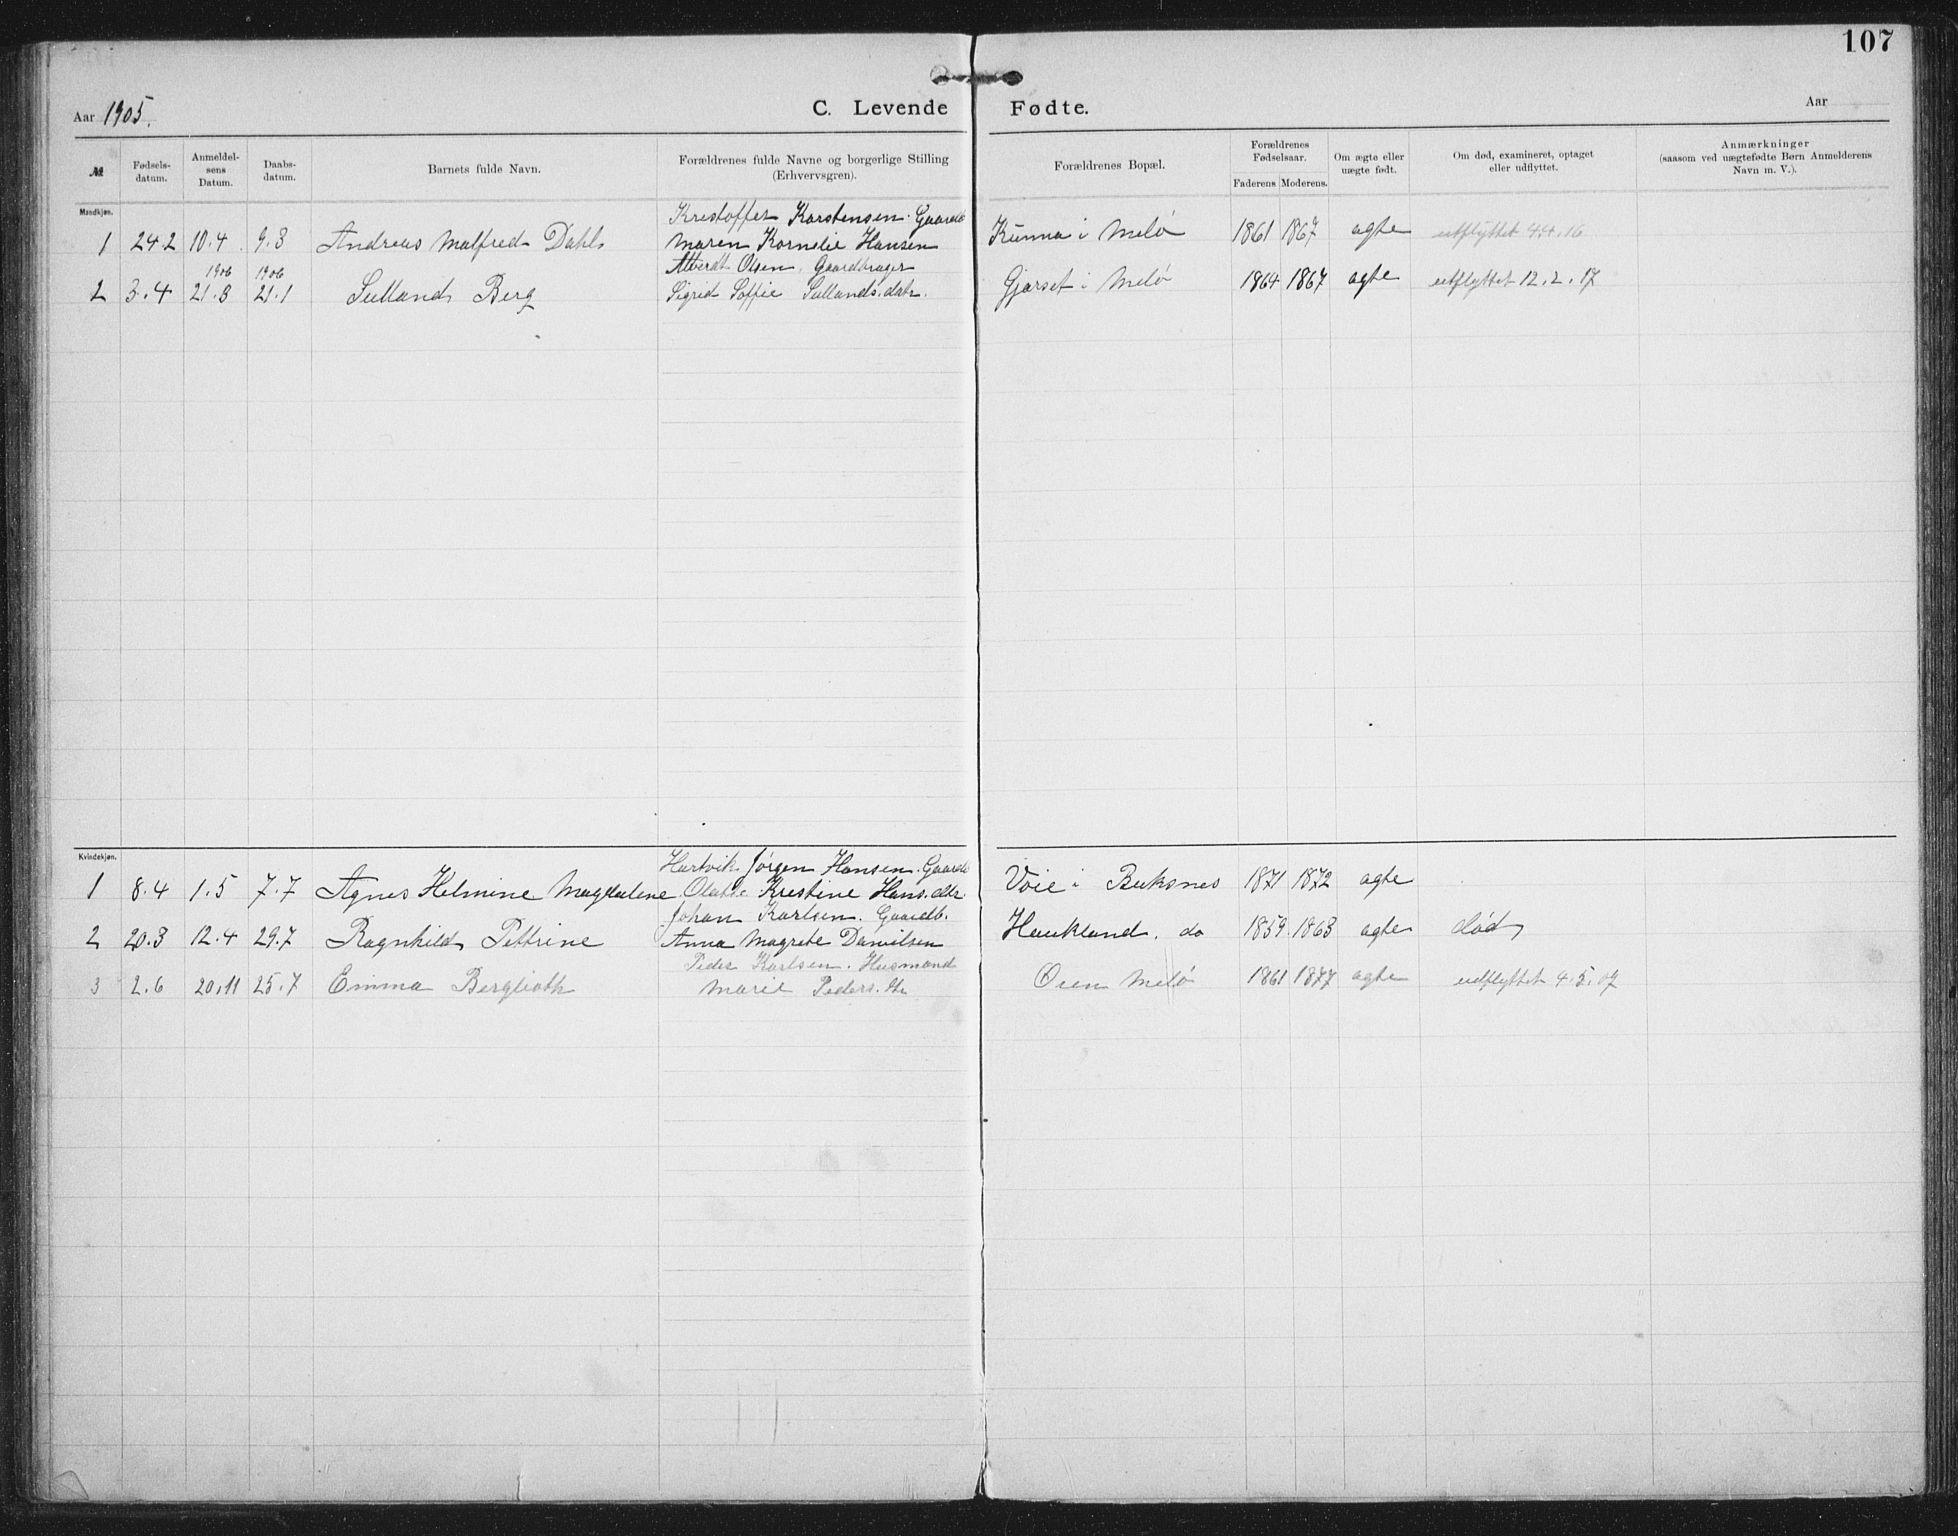 107
Aar 1905.
C. Levende Fødte.
Aar
№ Fødsels-datum. Anmeldel-sens Datum. Daabs-datum. Barnets fulde Navn. Forældrenes fulde Navne og borgerlige Stilling (Erhvervsgren). Forældrenes Bopæl. Forældrenes Fødselsaar. Faderens Moderens. Om ægte eller uægte født. Om død, examineret, optaget eller udflyttet. Anmærkninger (saasom ved uægtefødte Børn Anmelderens Navn m. V.).
Mandkjøn.
Krestoffer Karstensen. Gaardb
1 24.2 10.4 9.3 Andreas Malfred Dahl Maren Kornelie Hansen Kunna i Melø 1861 1867 ægte utflyttet 4.4.16
1906 1906 Alberdt Olsen. Gaardbruger
2 3.4 21.3 21.1 Sulland Berg Sigrid Soffie Sullands.datr. Gjærset i Melø 1864 1867 ægte utflyttet 12.2.17
Kvindekjøn.
Hartvik Jørgen Hansen. Gaardb
1 8.4 1.5 7.7 Agnes Helmine Magdalene Krestine Hans.dtr. Voie i Buksnes 1871 1872 ægte
Johan Karlsen. Gaardb.
2 20.3 12.4 29.7 Ragnhild Pettrine Anna Magrete Danilsen Haukland. do 1859 1863 ægte død
Peder Karlsen. Husmand
3 2.6 20.11 25.7 Emma Berglioth Marie Peders.dtr Osen Melø 1861 1877 ægte udflyttet 4.5.07